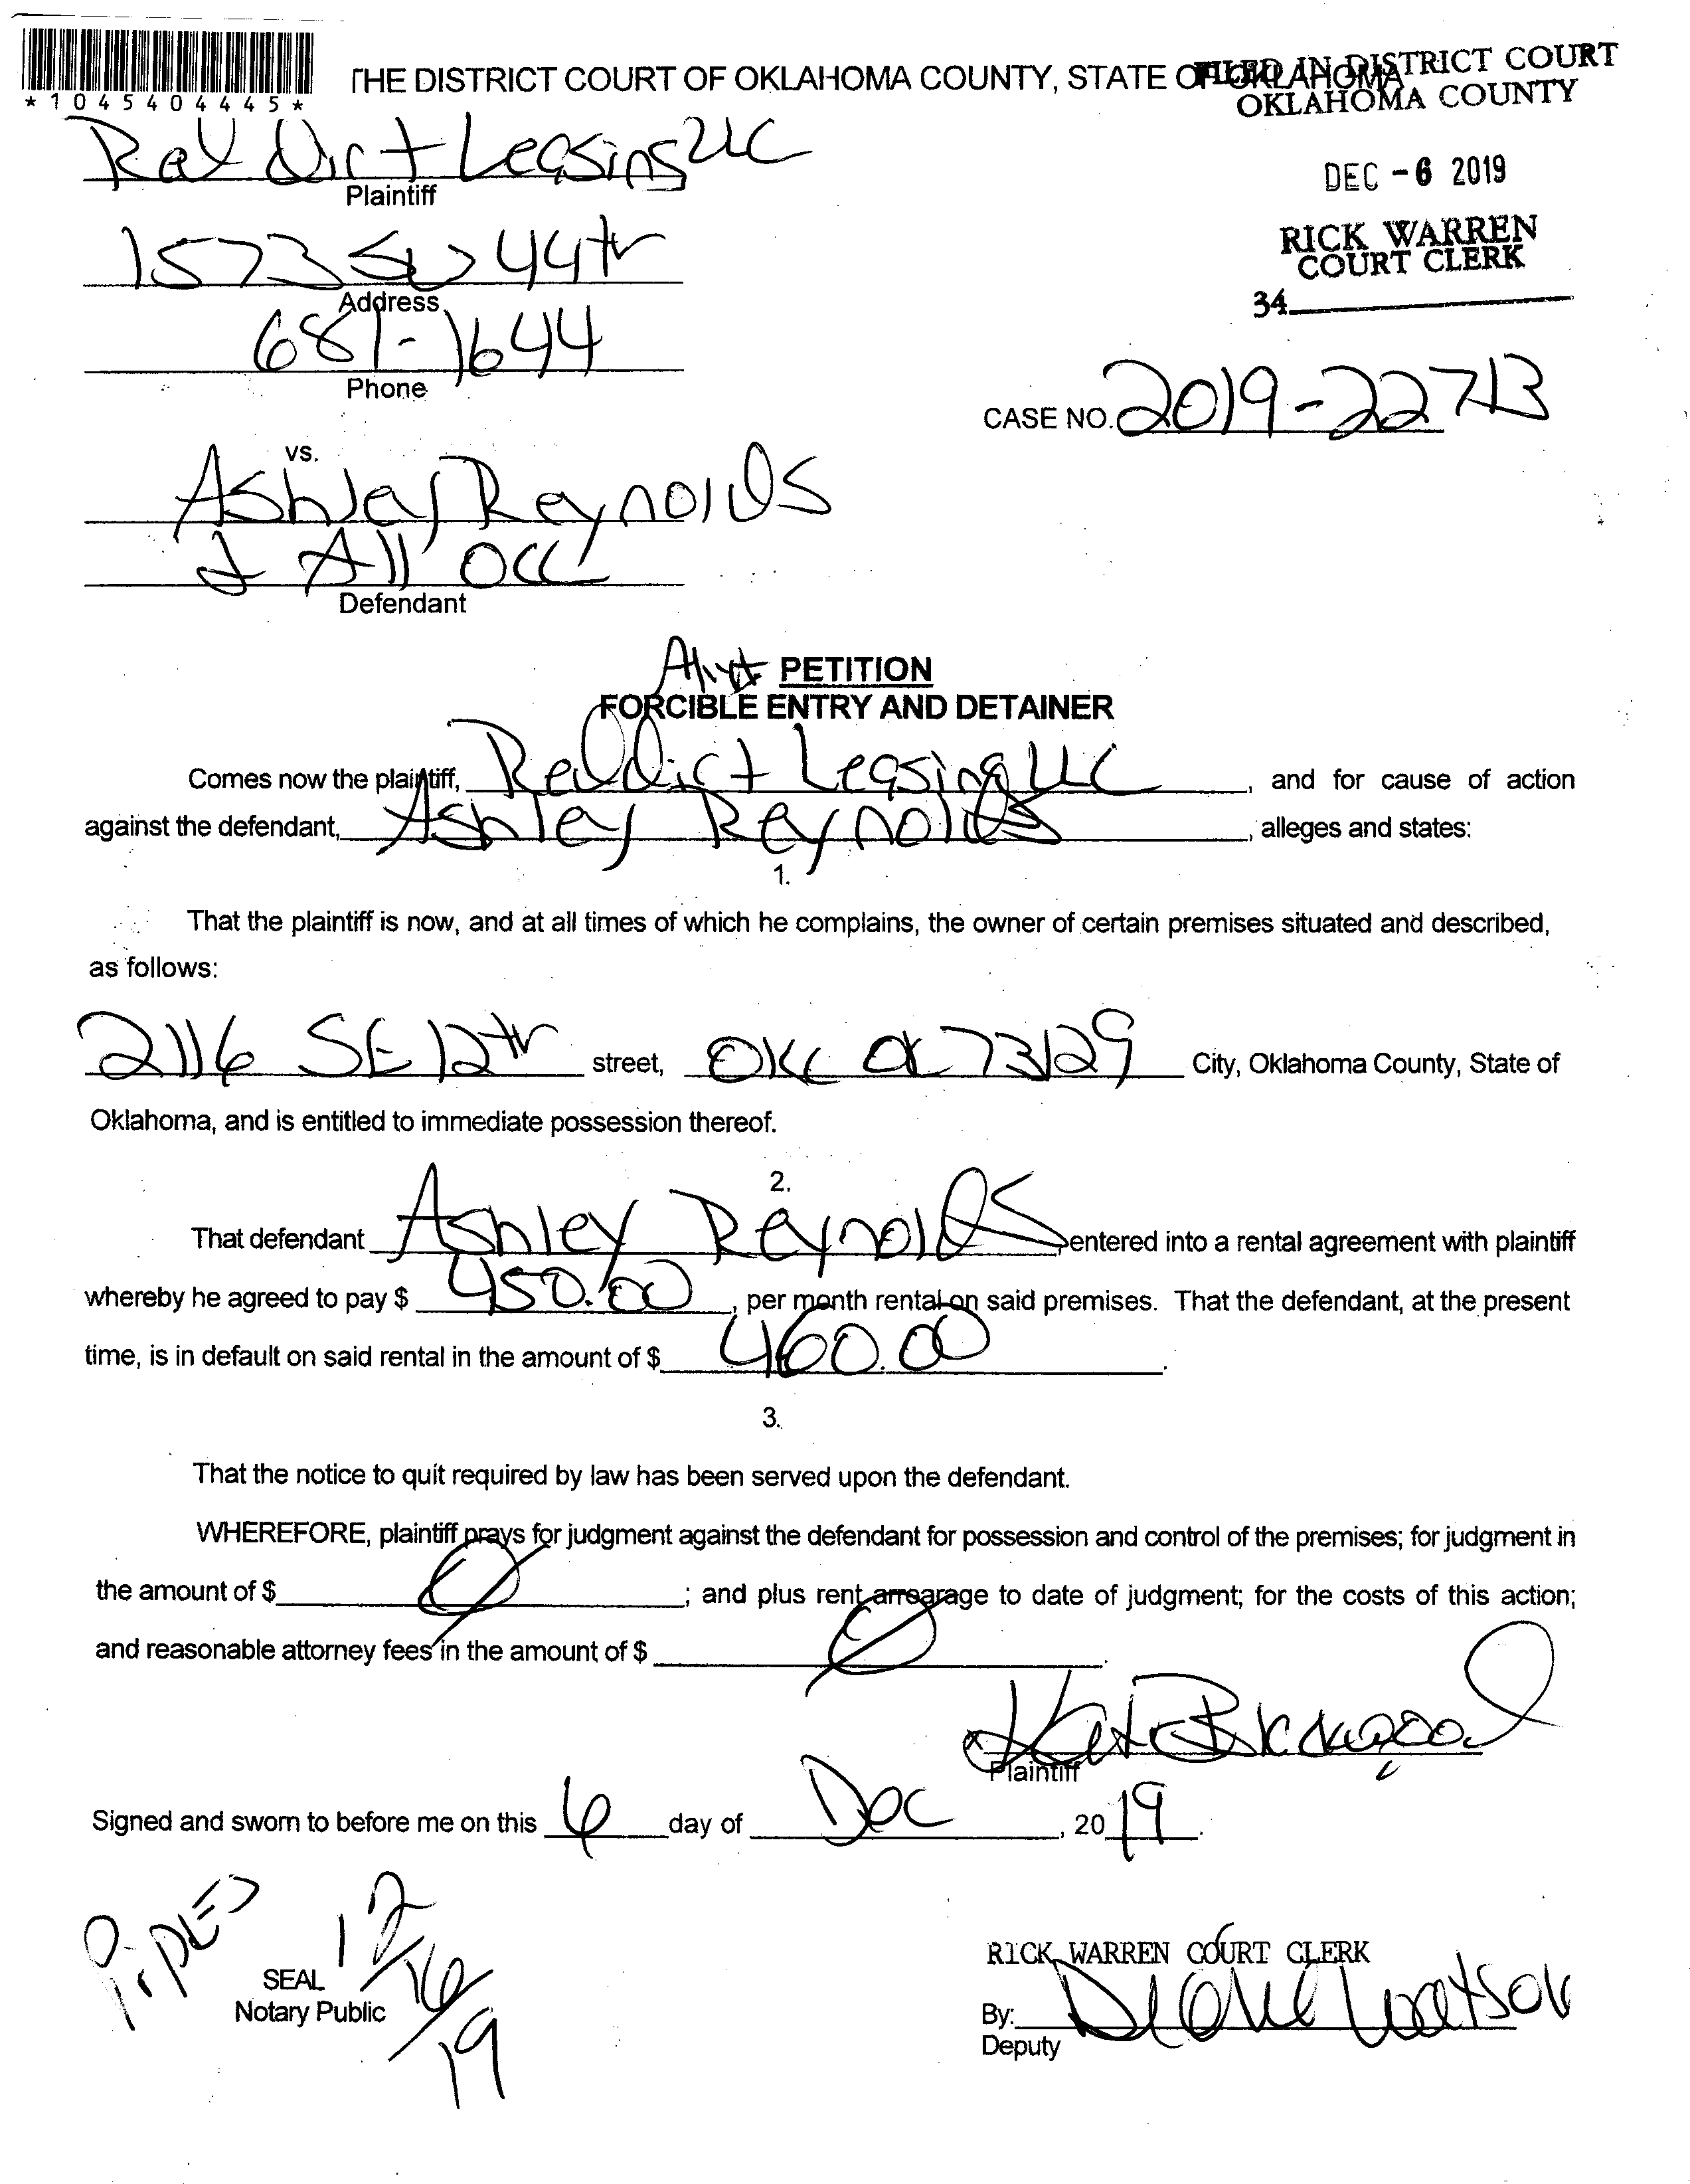 *1045404445*
THE DISTRICT COURT OF OKLAHOMA COUNTY, STATE OF OKLAHOMA
FILED IN DISTRICT COURT
OKLAHOMA COUNTY
DEC -6 2019
RICK WARREN
COURT CLERK
34
Leasing LLC
Plaintiff
1573 SW 44th
Address
681-1644
Phone
CASE NO. 2019-22713
vs.
Ashley Reynolds
& All Occ
Defendant
PETITION
FORCIBLE ENTRY AND DETAINER
Comes now the plaintiff, Leasing LLC, and for cause of action
against the defendant, Ashley Reynolds, alleges and states:
1.
That the plaintiff is now, and at all times of which he complains, the owner of certain premises situated and described,
as follows:
2116 SE 12th street, OKC OK 73129 City, Oklahoma County, State of
Oklahoma, and is entitled to immediate possession thereof.
2.
That defendant Ashley Reynolds entered into a rental agreement with plaintiff
whereby he agreed to pay $ 450.00, per month rental on said premises. That the defendant, at the present
time, is in default on said rental in the amount of $ 460.00.
3.
That the notice to quit required by law has been served upon the defendant.
WHEREFORE, plaintiff prays for judgment against the defendant for possession and control of the premises; for judgment in
the amount of $ 0; and plus rent arrearage to date of judgment; for the costs of this action;
and reasonable attorney fees in the amount of $ 0.
Plaintiff
Signed and sworn to before me on this 6 day of Dec, 2019.
12/16/19
SEAL
Notary Public
RICK WARREN COURT CLERK
By: Diane Watson
Deputy